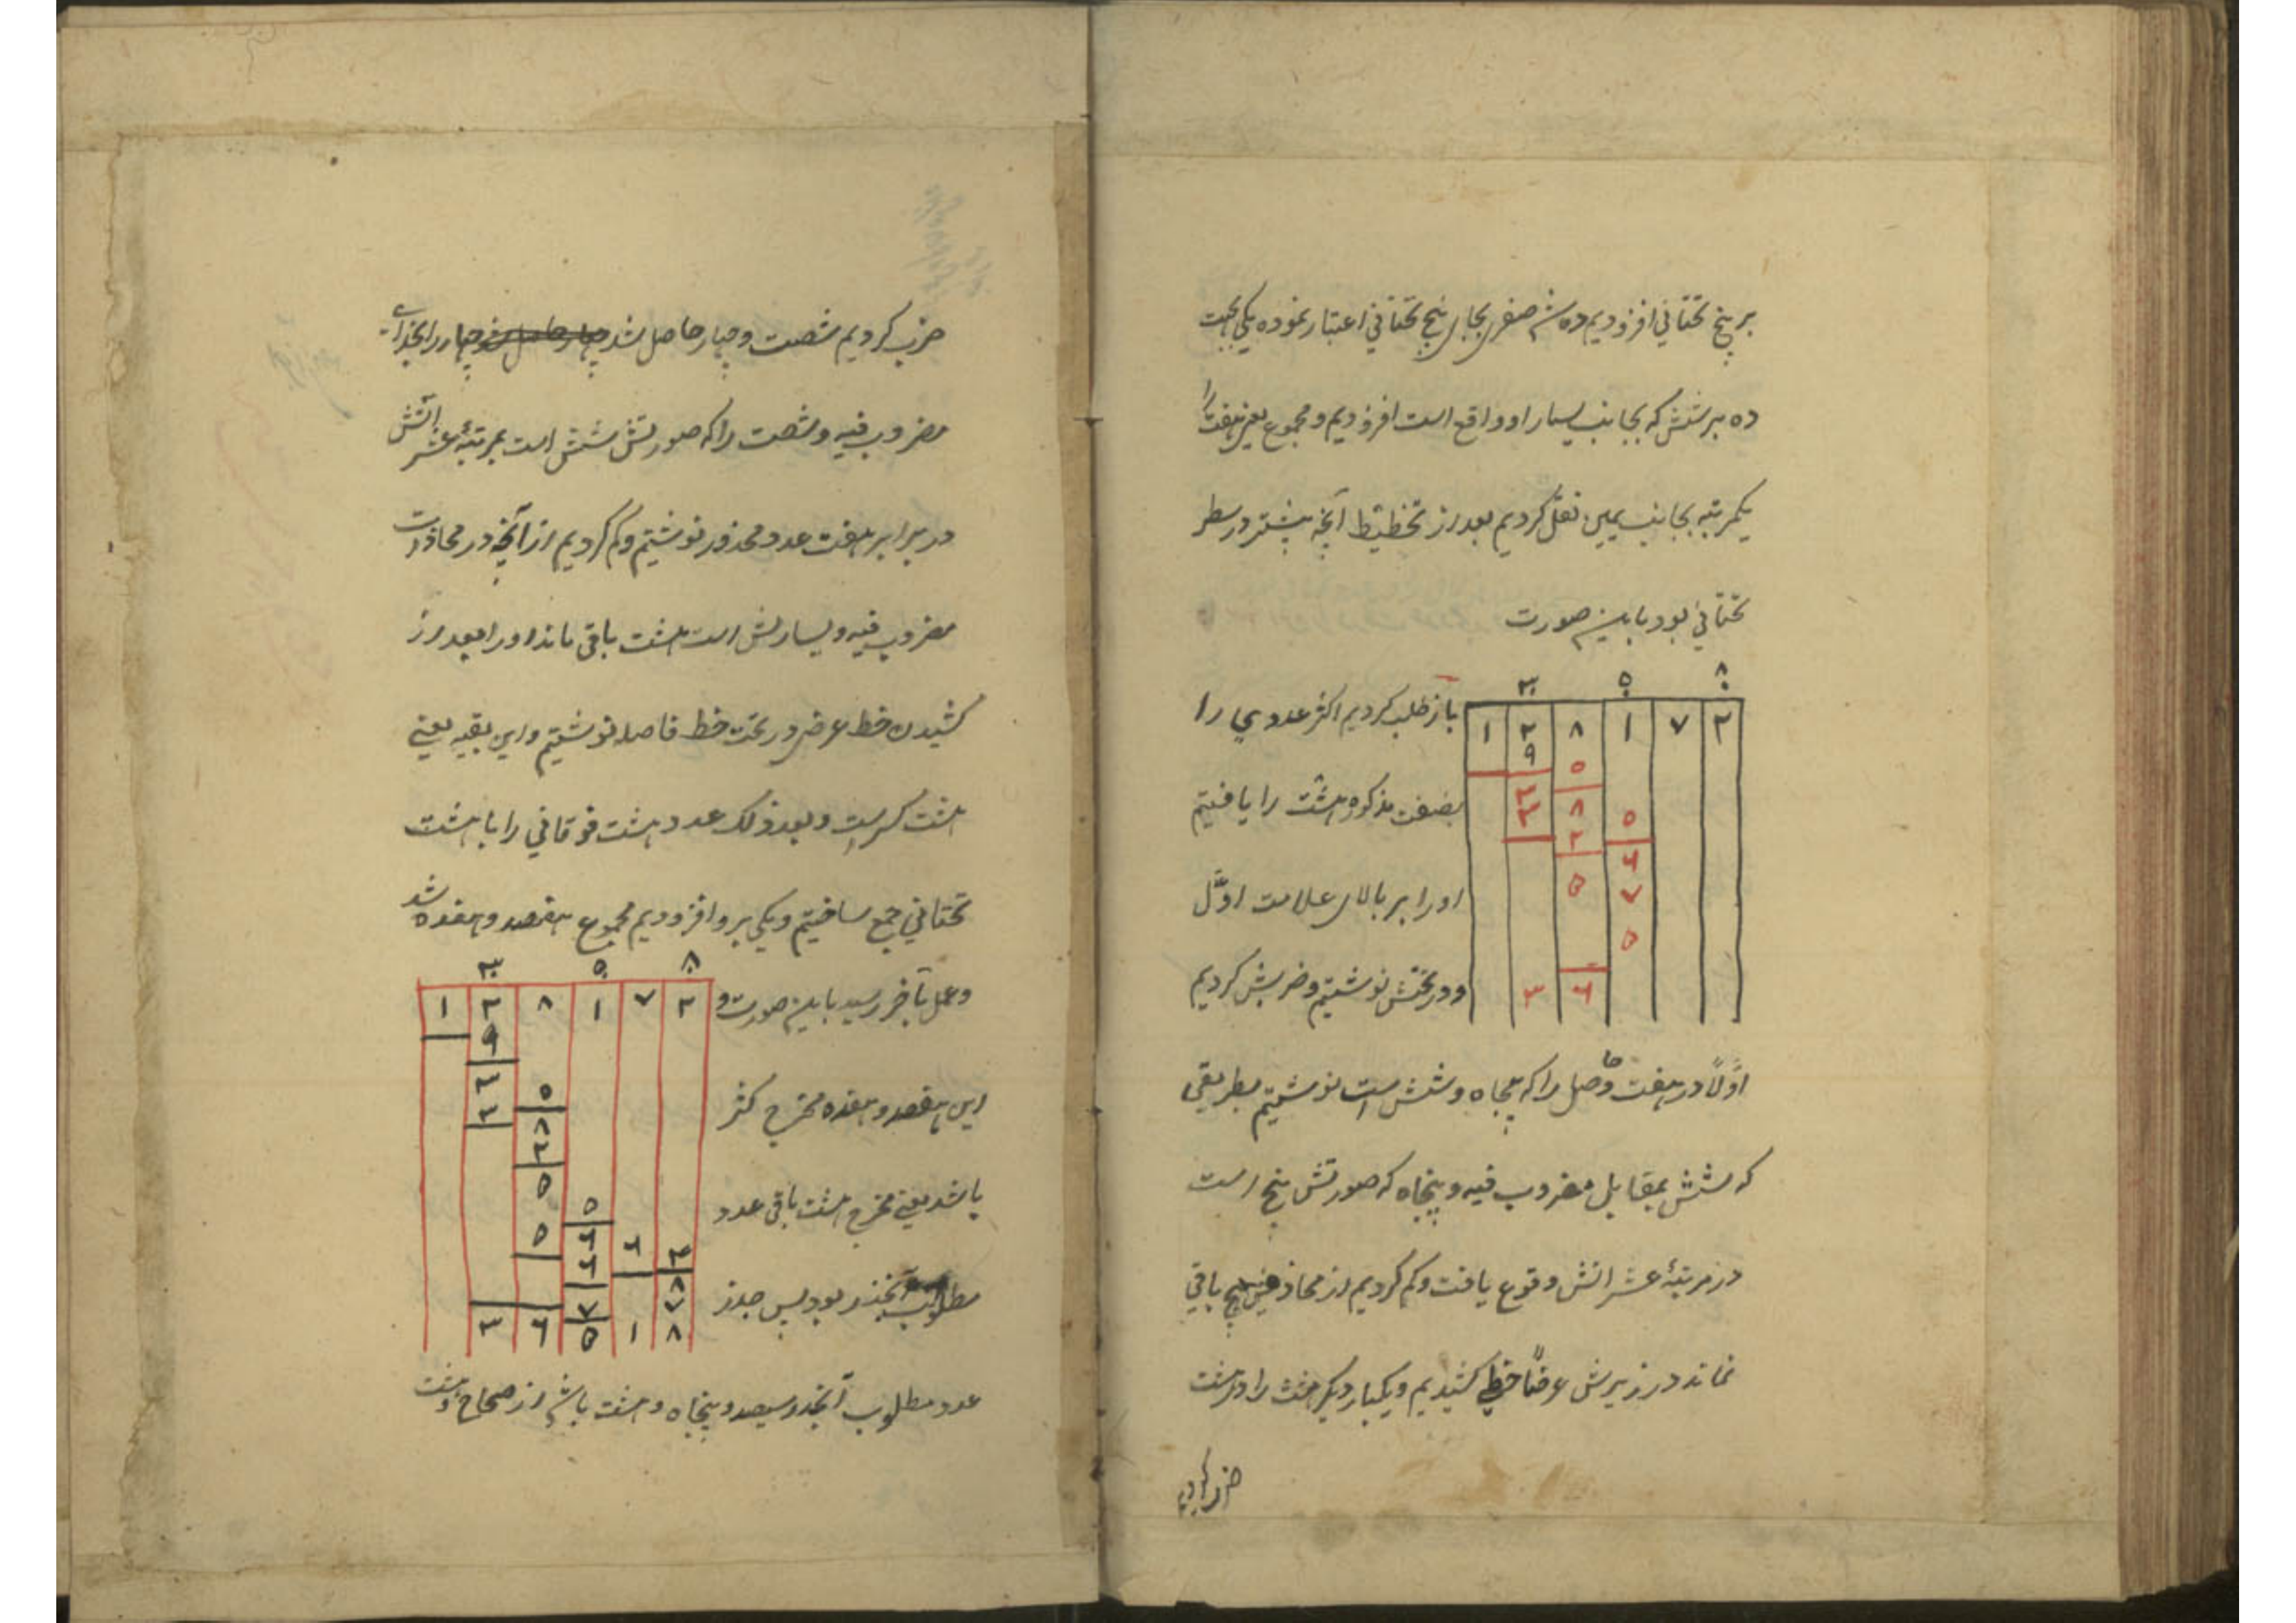 بر پنج تحتانی افزودیم ده شد صفر بجای پنج تحتانی اعتبار نموده یکی بجهت
ده بر شش که بجانب یسار او واقع است افزودیم و مجموع یعنی هفت را
یکمرتبه بجانب یمین نقل کردیم بعد از تخطیط آنچه پیشتر در سطر
تحتانی بود باین صورت
۳ ۵ ۸
۱ ۲ ۸ ۱ ۷ ۲
۹ ۵
۸ ۵
۲ ۶
۵ ۷
۵
۳ ۶
باز طلب کردیم اکثر عددی را
بصفت مذکوره هشت را یافتیم
او را بر بالای علامت اوّل
و در تحتش نوشتیم و ضربش کردیم
اوّلاً در هفت حاصل را که پنجاه و شش است نوشتیم بطریقی
که شش بمقابل مضروب فیه و پنجاه که صورتش پنج است
در مرتبهٔ عشراتش وقوع یافت و کم کردیم از محاذیش هیچ باقی
نماند در زیرش عرضاً خطی کشیدیم و یکبار دیگر هشت را در هشت
ضرب کردیم
ضرب کردیم شصت و چهار حاصل شد چهار را بحذای
مضروب فیه و شصت را که صورتش شش است بمرتبهٔ عشراتش
در برابر هفت عدد مجذور نوشتیم و کم کردیم از آنچه در محاذات
مضروب فیه و یسارش است هشت باقی ماند او را بعد از
کشیدن خط عرضی در تحت خط فاصل نوشتیم و این بقیه یعنی
هشت کسر است و بعد ذلک عدد هشت فوقانی را با هشت
تحتانی جمع ساختیم و یکی برو افزودیم مجموع هفتصد و هفده شد
و عمل بآخر رسید باین صورت و
۳ ۵ ۸
۱ ۲ ۸ ۱ ۷ ۲
۹
۳ ۵
۳ ۸
۲
۵ ۵
۵ ۶ ۶ ۴
۶ ۸
۷ ۷
۳ ۶ ۵ ۱ ۸
این هفتصد و هفده مخرج کسر
باشد یعنی مخرج هشت باقی عدد
مطلوب الجذر بود پس جذر
عدد مطلوب الجذر سیصد و پنجاه و هشت باشد از صحاح و هشت